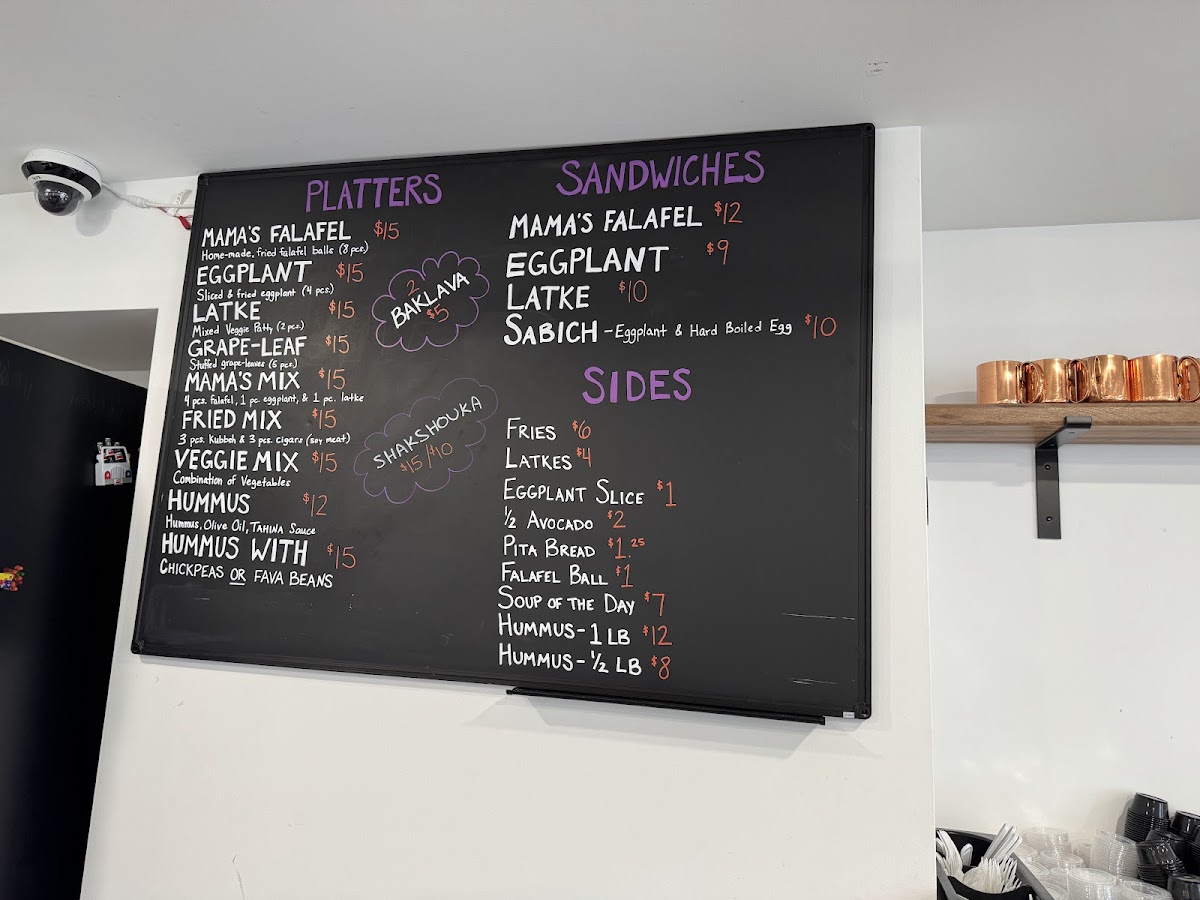 PLATTERS
MAMA'S FALAFEL $15
Home-made, fried falafel balls (8 pcs.)
EGGPLANT $15
Sliced & fried eggplant (4 pcs.)
LATKE $15
Mixed Veggie Patty (2 pcs.)
GRAPE-LEAF $15
Stuffed grape-leaves (5 pcs.)
MAMA'S MIX $15
4 pcs. falafel, 1 pc. eggplant, & 1 pc. latke
FRIED MIX $15
3 pcs. Kubbeh & 3 pcs. cigars (soy meat)
VEGGIE MIX $15
Combination of Vegetables
HUMMUS $12
Hummus, Olive Oil, TAHINA Sauce
HUMMUS WITH $15
CHICKPEAS OR FAVA BEANS
2
BAKLAVA
$5
SHAKSHOUKA
$15/$10
SANDWICHES
MAMA'S FALAFEL $12
EGGPLANT $9
LATKE $10
SABICH - Eggplant & Hard Boiled Egg $10
SIDES
FRIES $6
LATKES $4
EGGPLANT SLICE $1
½ AVOCADO $2
PITA BREAD $1.25
FALAFEL BALL $1
SOUP OF THE DAY $7
HUMMUS - 1 LB $12
HUMMUS - ½ LB $8